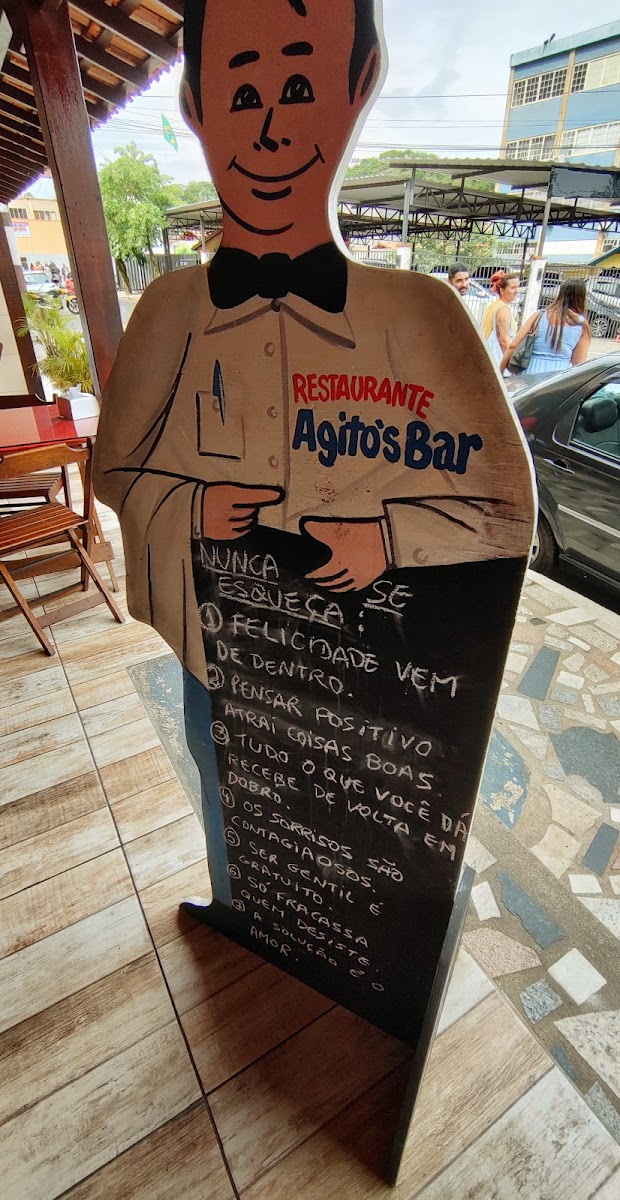 RESTAURANTE
Agito's Bar
NUNCA SE
ESQUEÇA:
① FELICIDADE VEM
DE DENTRO.
② PENSAR POSITIVO
ATRAI COISAS BOAS.
③ TUDO O QUE VOCÊ DÁ
RECEBE DE VOLTA EM
DOBRO.
④ OS SORRISOS SÃO
CONTAGIAOSOS.
⑤ SER GENTIL É
GRATUITO!
⑥ SÓ FRACASSA
QUEM DESISTE.
⑦ A SOLUÇÃO É O
AMOR.